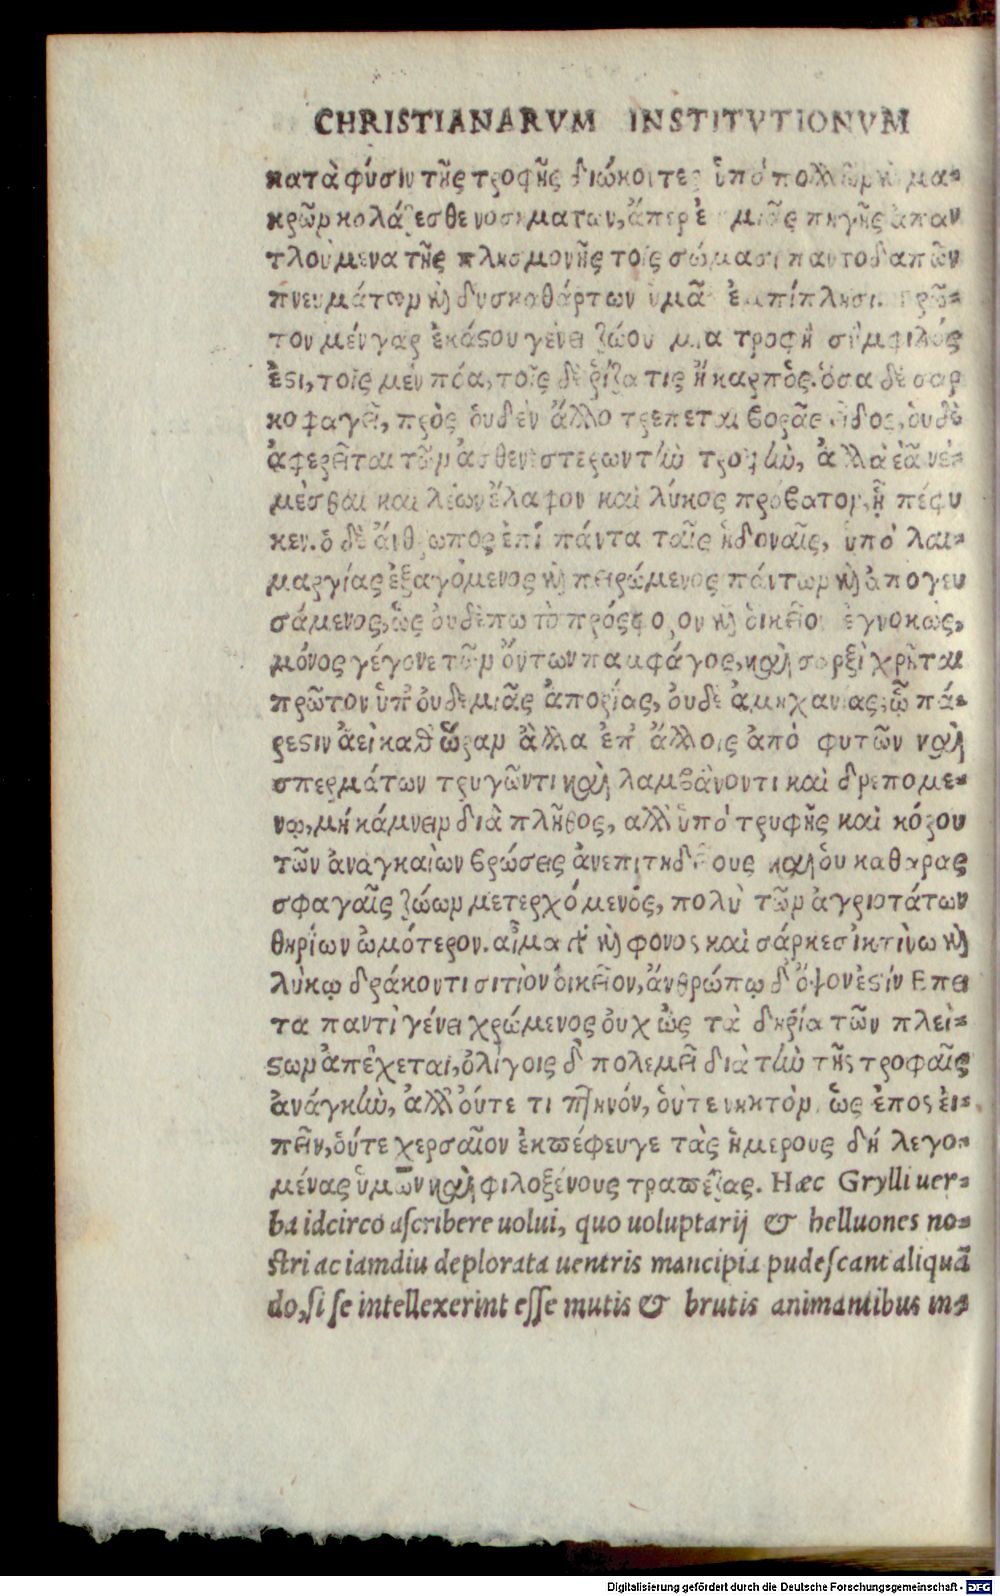 CHRISTIANARVM INSTITVTIONVM
κατὰ φύσιν τῆς τροφῆς διώκοντες ὑπὸ πολλῶν καὶ μα-
κρῶν κολάζεσθε νοσημάτων, ἅπερ ἐκ μιᾶς πηγῆς ἀπαν
τλούμενα τῆς πλησμονῆς τοῖς σώμασι παντοδαπῶν
πνευμάτων καὶ δυσκαθάρτων ὑμᾶς ἐμπίπλησι. πρῶ-
τον μέν γαρ ἑκάστου γένει ζώου μία τροφὴ σύμφιλός
ἐστι, τοῖς μέν πόα, τοῖς δὲ ῥίζα τις ἢ καρπὸς. ὅσα δὲ σαρ
κοφαγεῖ, πρὸς ὀυδὲν ἄλλο τρέπεται βορᾶς εἶδος, ὀυδὲ
ἀφερεῖται τῶν ἀσθενεστερων τὴν τροφὴν, ἀλλὰ ἐᾶ νέ-
μεσθαι καὶ λέων ἔλαφον καὶ λύκος πρόβατον, ᾗ πέφυ
κεν. ὁ δὲ ἄνθρωπος ἐπί πάντα ταῖς ἡδοναῖς, ὑπὸ λαι-
μαργίας ἐξαγόμενος καὶ πειρώμενος πάντων καὶ ἀπογευ
σάμενος, ὡς ὀυδέπω τὸ πρόσφορον καὶ ὀικεῖον ἐγνοκὼς,
μόνος γέγονε τῶν ὄντων παμφάγος, καὶ σαρξὶ χρῆται
πρῶτον ὑπ' ὀυδεμιᾶς ἀπορίας, ὀυδὲ ἀμηχανίας, ᾧ πά-
ρεστιν ἀεὶ καθ' ὥραν ἄλλα ἐπ' ἄλλοις ἀπό φυτῶν καὶ
σπερμάτων τρυγῶντι καὶ λαμβάνοντι καὶ δρεπομέ-
νῳ, μή κάμνειν διὰ πλῆθος, αλλ' ὑπό τρυφῆς καὶ κόρου
τῶν ἀναγκαίων βρώσεις ἀνεπιτηδείους καὶ ὀυ καθαρας
σφαγαῖς ζώων μετερχόμενος, πολὺ τῶν ἀγριοτάτων
θηρίων ὠμότερον. αἷμα καὶ φονος καὶ σάρκες ἰκτίνω καὶ
λύκῳ δράκοντι σιτίον ὀικεῖον, ἄνθρώπῳ δ' ὄψον ἐστίν Επει
τα παντὶ γένει χρώμενος ὀυχ ὡς τὰ θηρία τῶν πλεί-
στων ἀπέχεται, ὀλίγοις δ πολεμεῖ διὰ τὴν τῆς τροφαῖς
ἀνάγκὴν, ἀλλ' ὀύτε τι πτηνόν, ὀύτε νηκτὸν ὡς ἐπος ἐι-
πεῖν, ὀύτε χερσαῖον ἐκπέφευγε τὰς ἡμερους δή λεγο-
μένας ὑμῶν καὶ φιλοξένους τραπέζας. Hæc Grylli uer-
ba idcirco ascribere uolui, quo uoluptarij & helluones no-
stri ac iamdiu deplorata uentris mancipia pudescant aliquā
do, si se intellexerint esse mutis & brutis animantibus in-
Digitalisierung gefördert durch die Deutsche Forschungsgemeinschaft - DFG